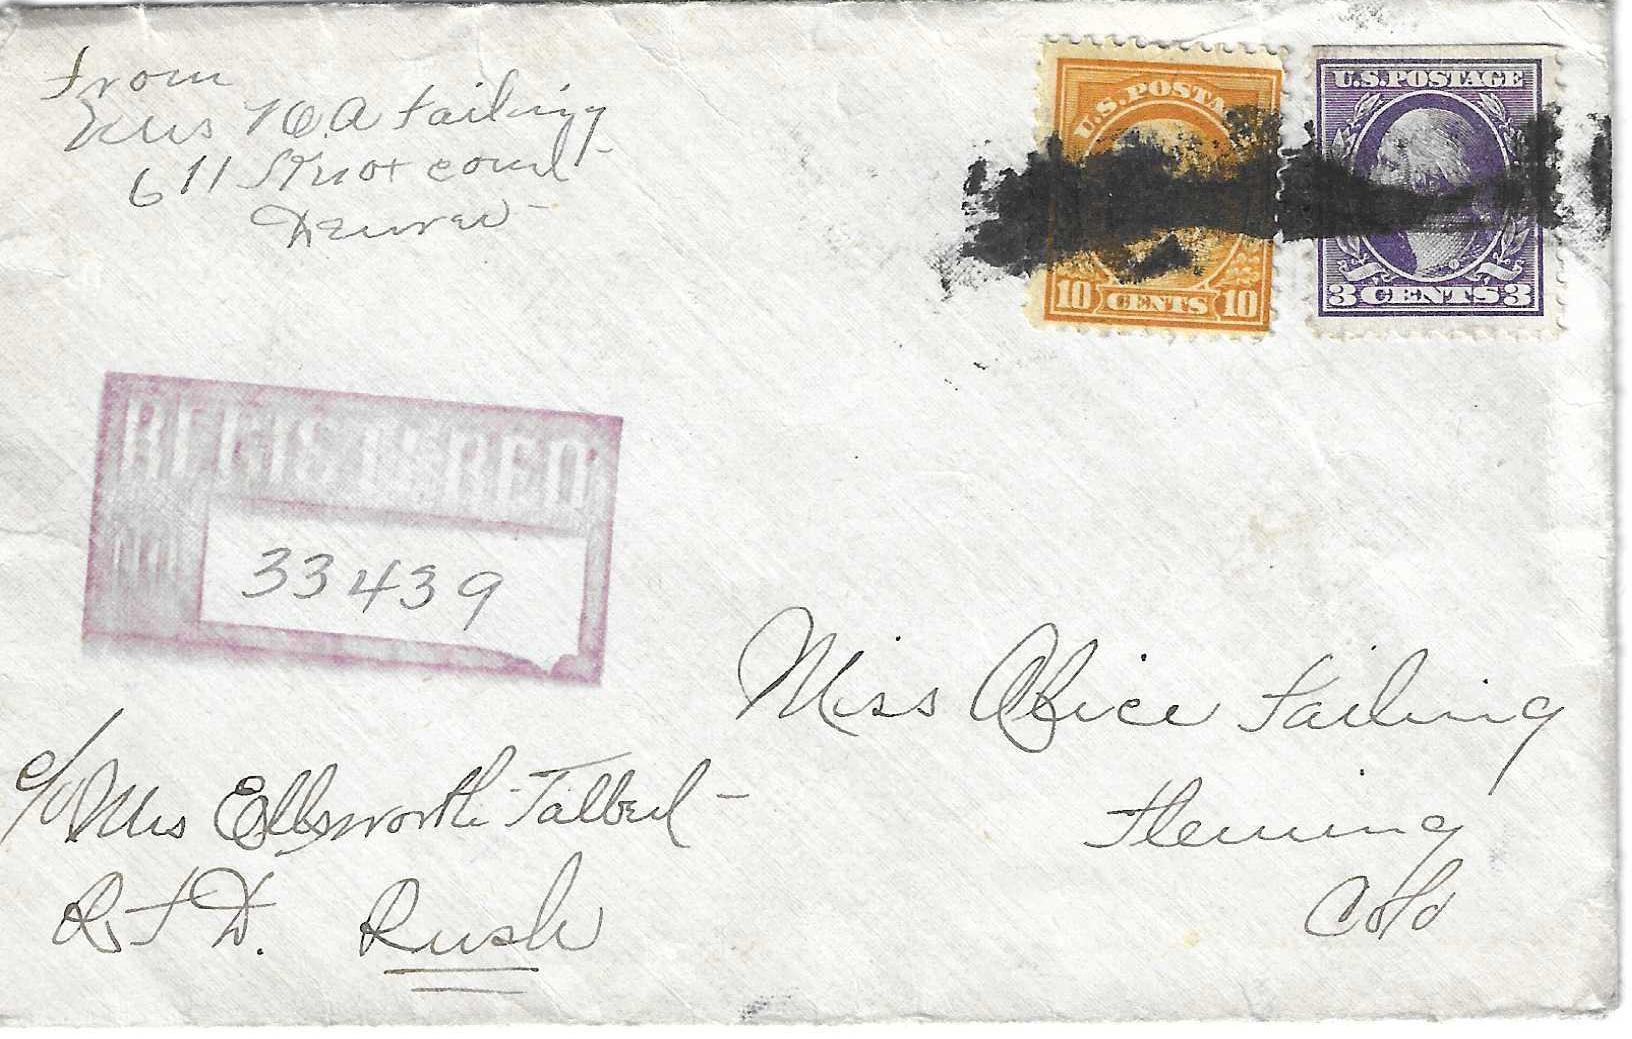 From
Mrs H.A Failing
611 Knox court
Denver
U.S. POSTA
10 CENTS 10
U.S. POSTAGE
3 CENTS 3
REGISTERED
NO.
33439
Miss Alice Failing
Fleming
Colo
c/o Mrs Ellsworth Talbert
R F D. Rush